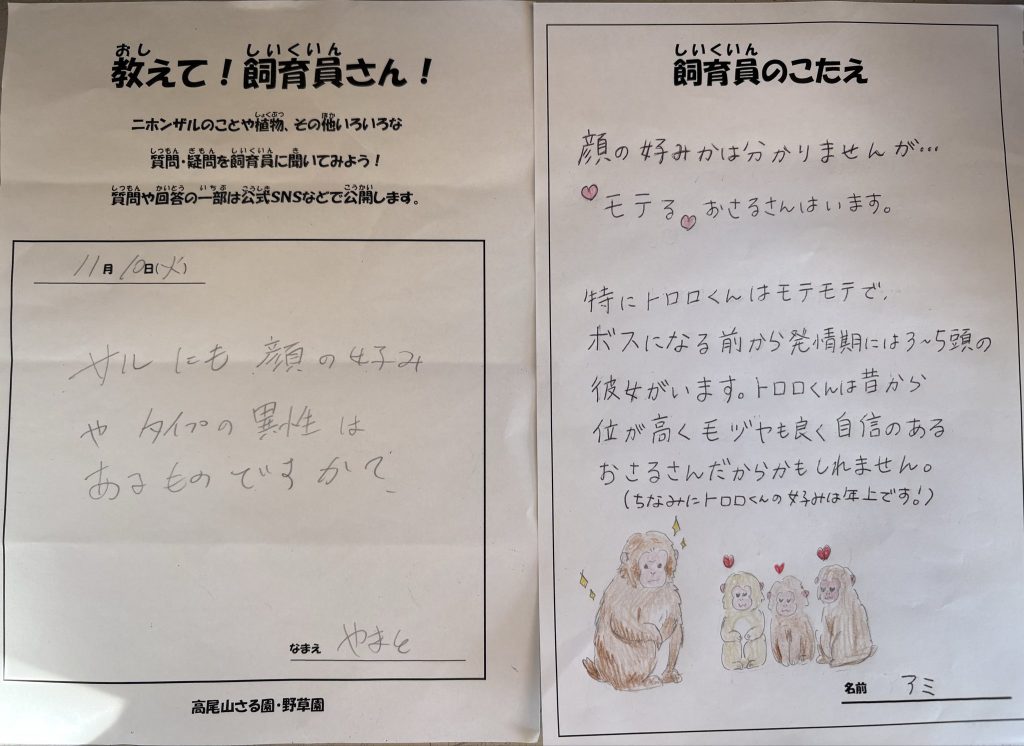 教えて！飼育員さん！
ニホンザルのことや植物、その他いろいろな
質問・疑問を飼育員に聞いてみよう！
質問や回答の一部は公式SNSなどで公開します。
11月10日(火)
サルにも顔の好み
やタイプの異性は
あるものですか？
なまえ やまと
高尾山さる園・野草園
飼育員のこたえ
顔の好みかは分かりませんが…
モテるおさるさんはいます。
特にトロロくんはモテモテで、
ボスになる前から発情期には3~5頭の
彼女がいます。トロロくんは昔から
位が高く毛ヅヤも良く自信のある
おさるさんだからかもしれません。
(ちなみにトロロくんの好みは年上です！)
名前 アミ